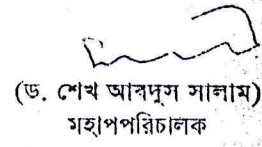 (ড. শেখ আবদুস সালাম)
মহাপপরিচালক